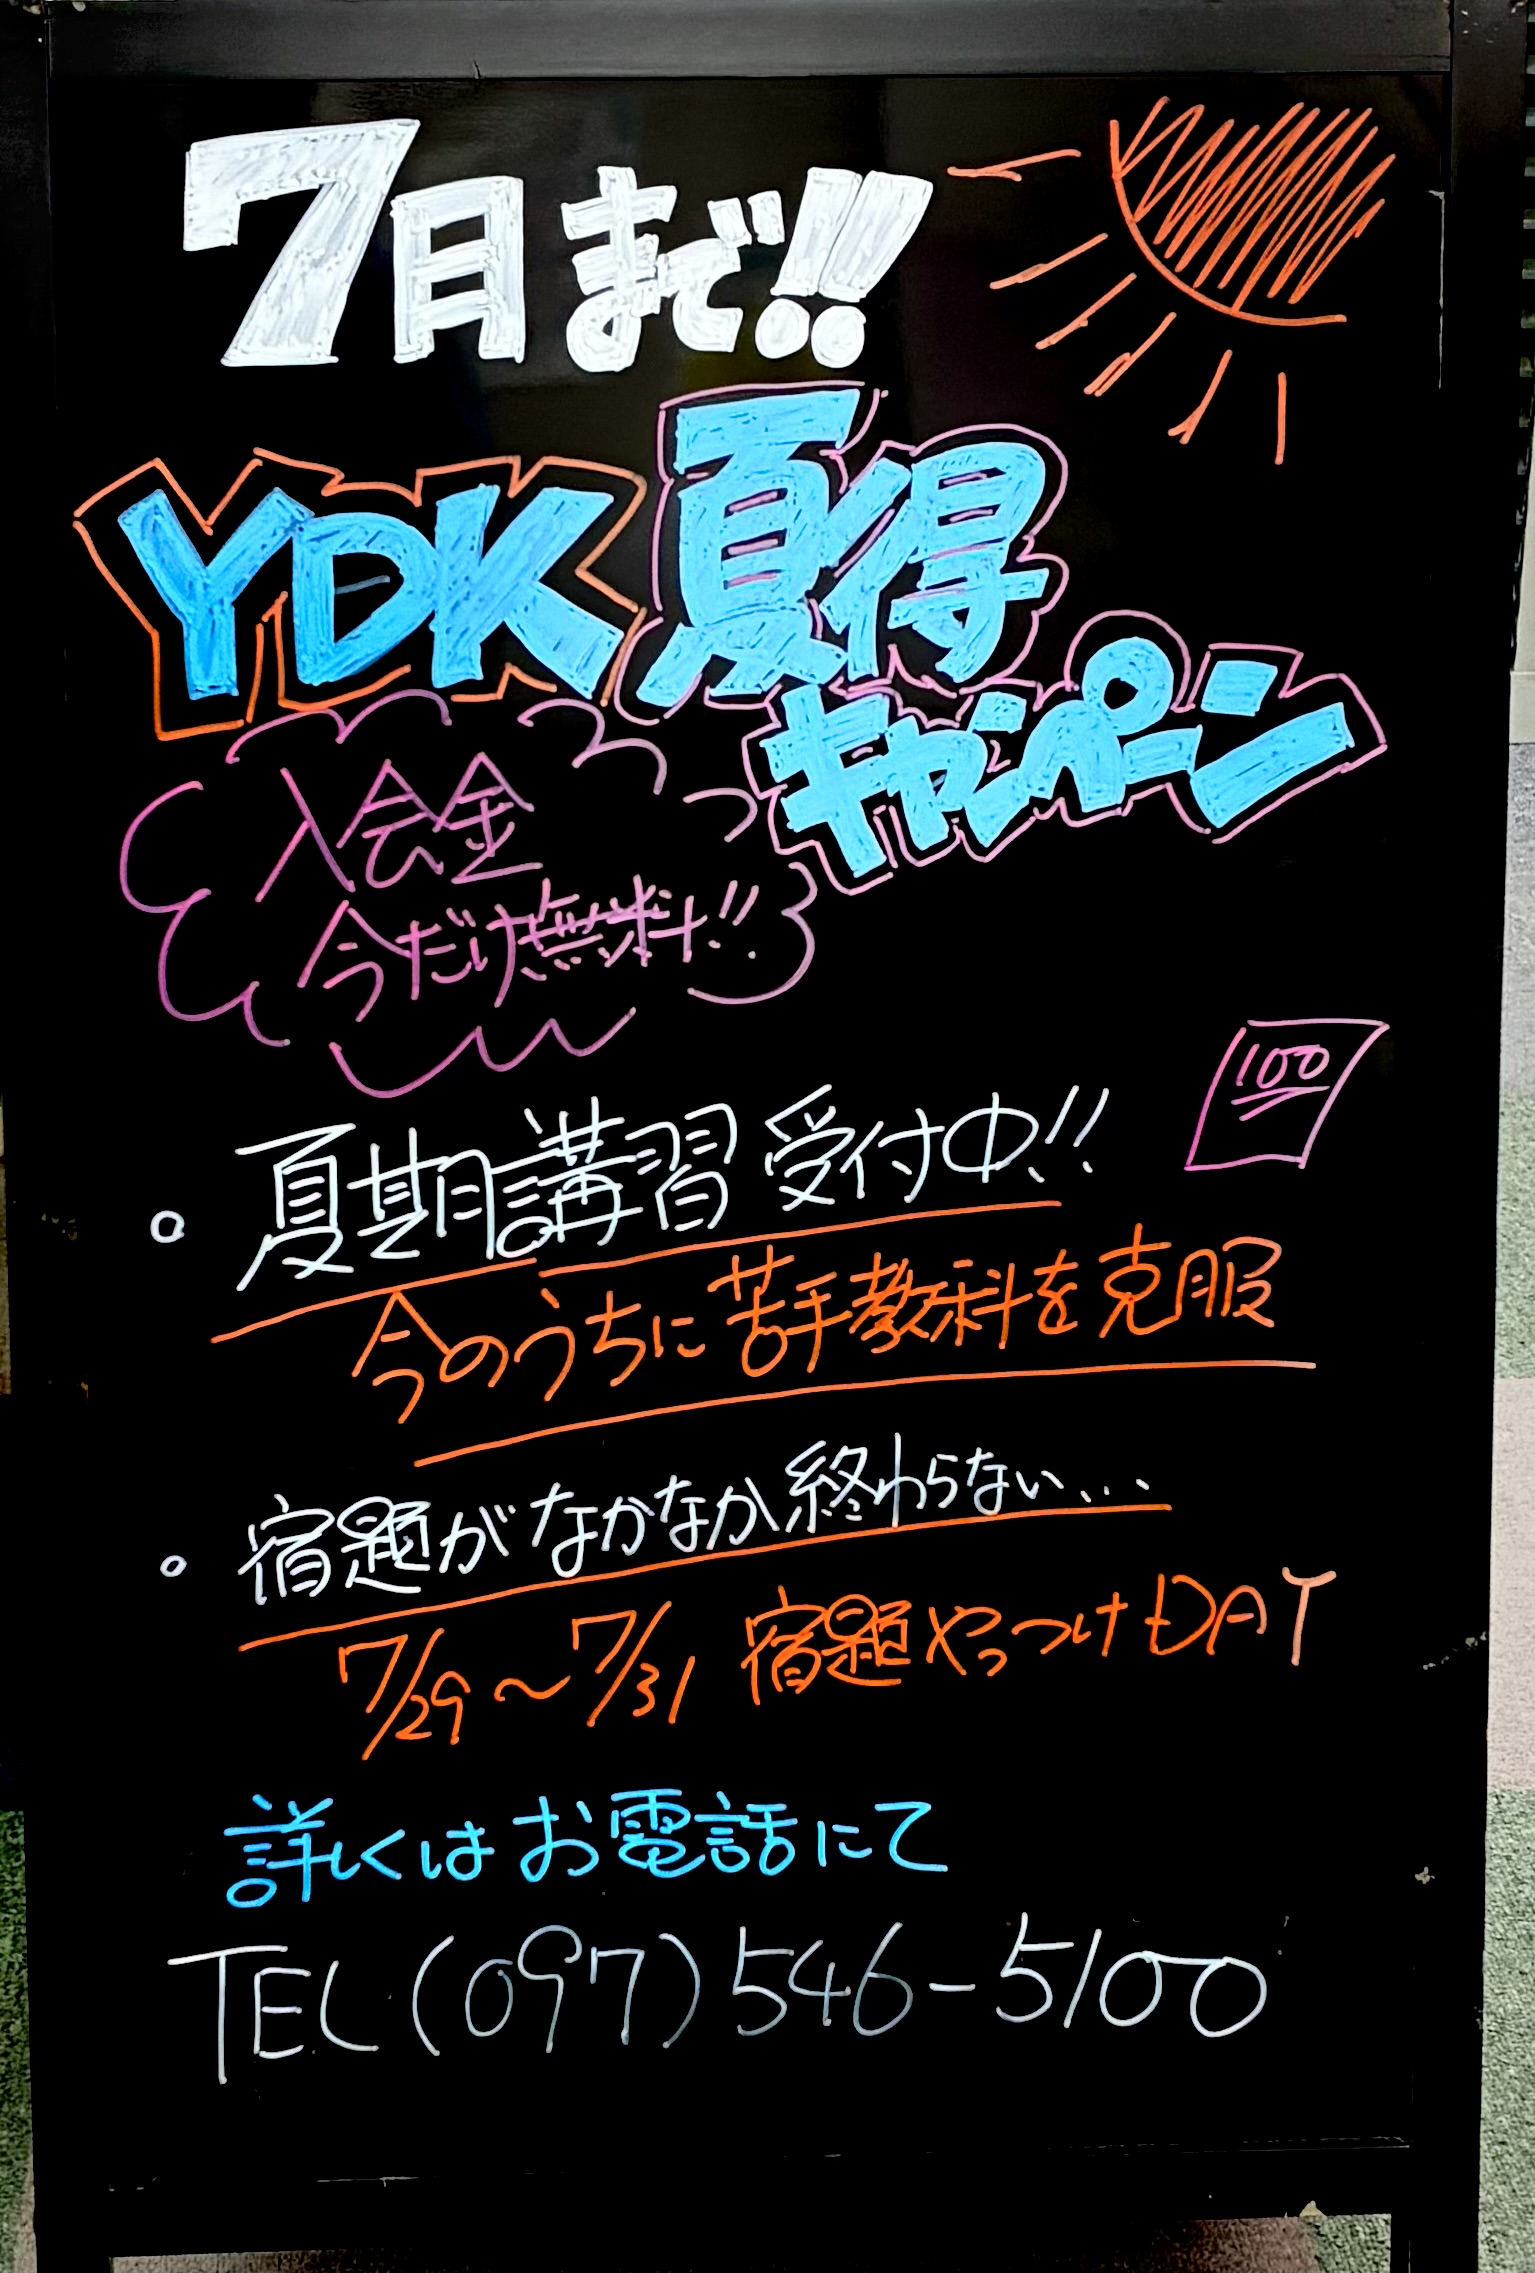 7月まで!!
YDK夏得
キャンペーン
入会金
今だけ無料!!
100
。夏期講習 受付中!!
今のうちに苦手教科を克服
。宿題がなかなか終わらない...
7/29～7/31 宿題やっつけDAY
詳しくはお電話にて
TEL(097)546-5100